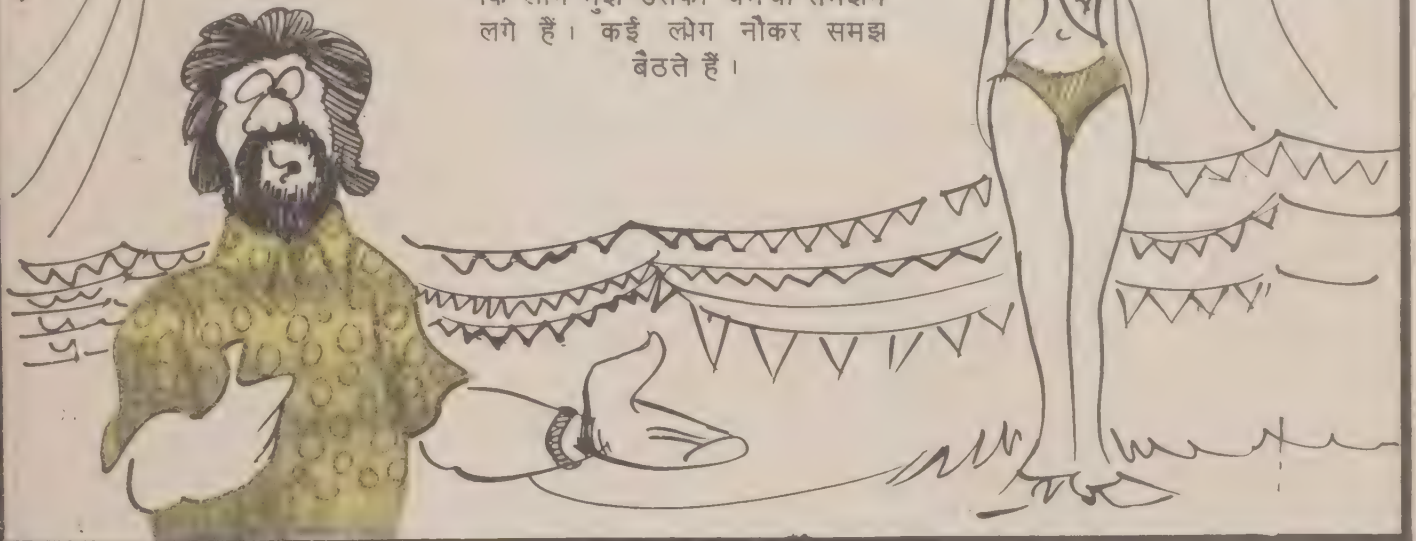 लगे हैं। कई लोग नौकर समझ
बैठते हैं।